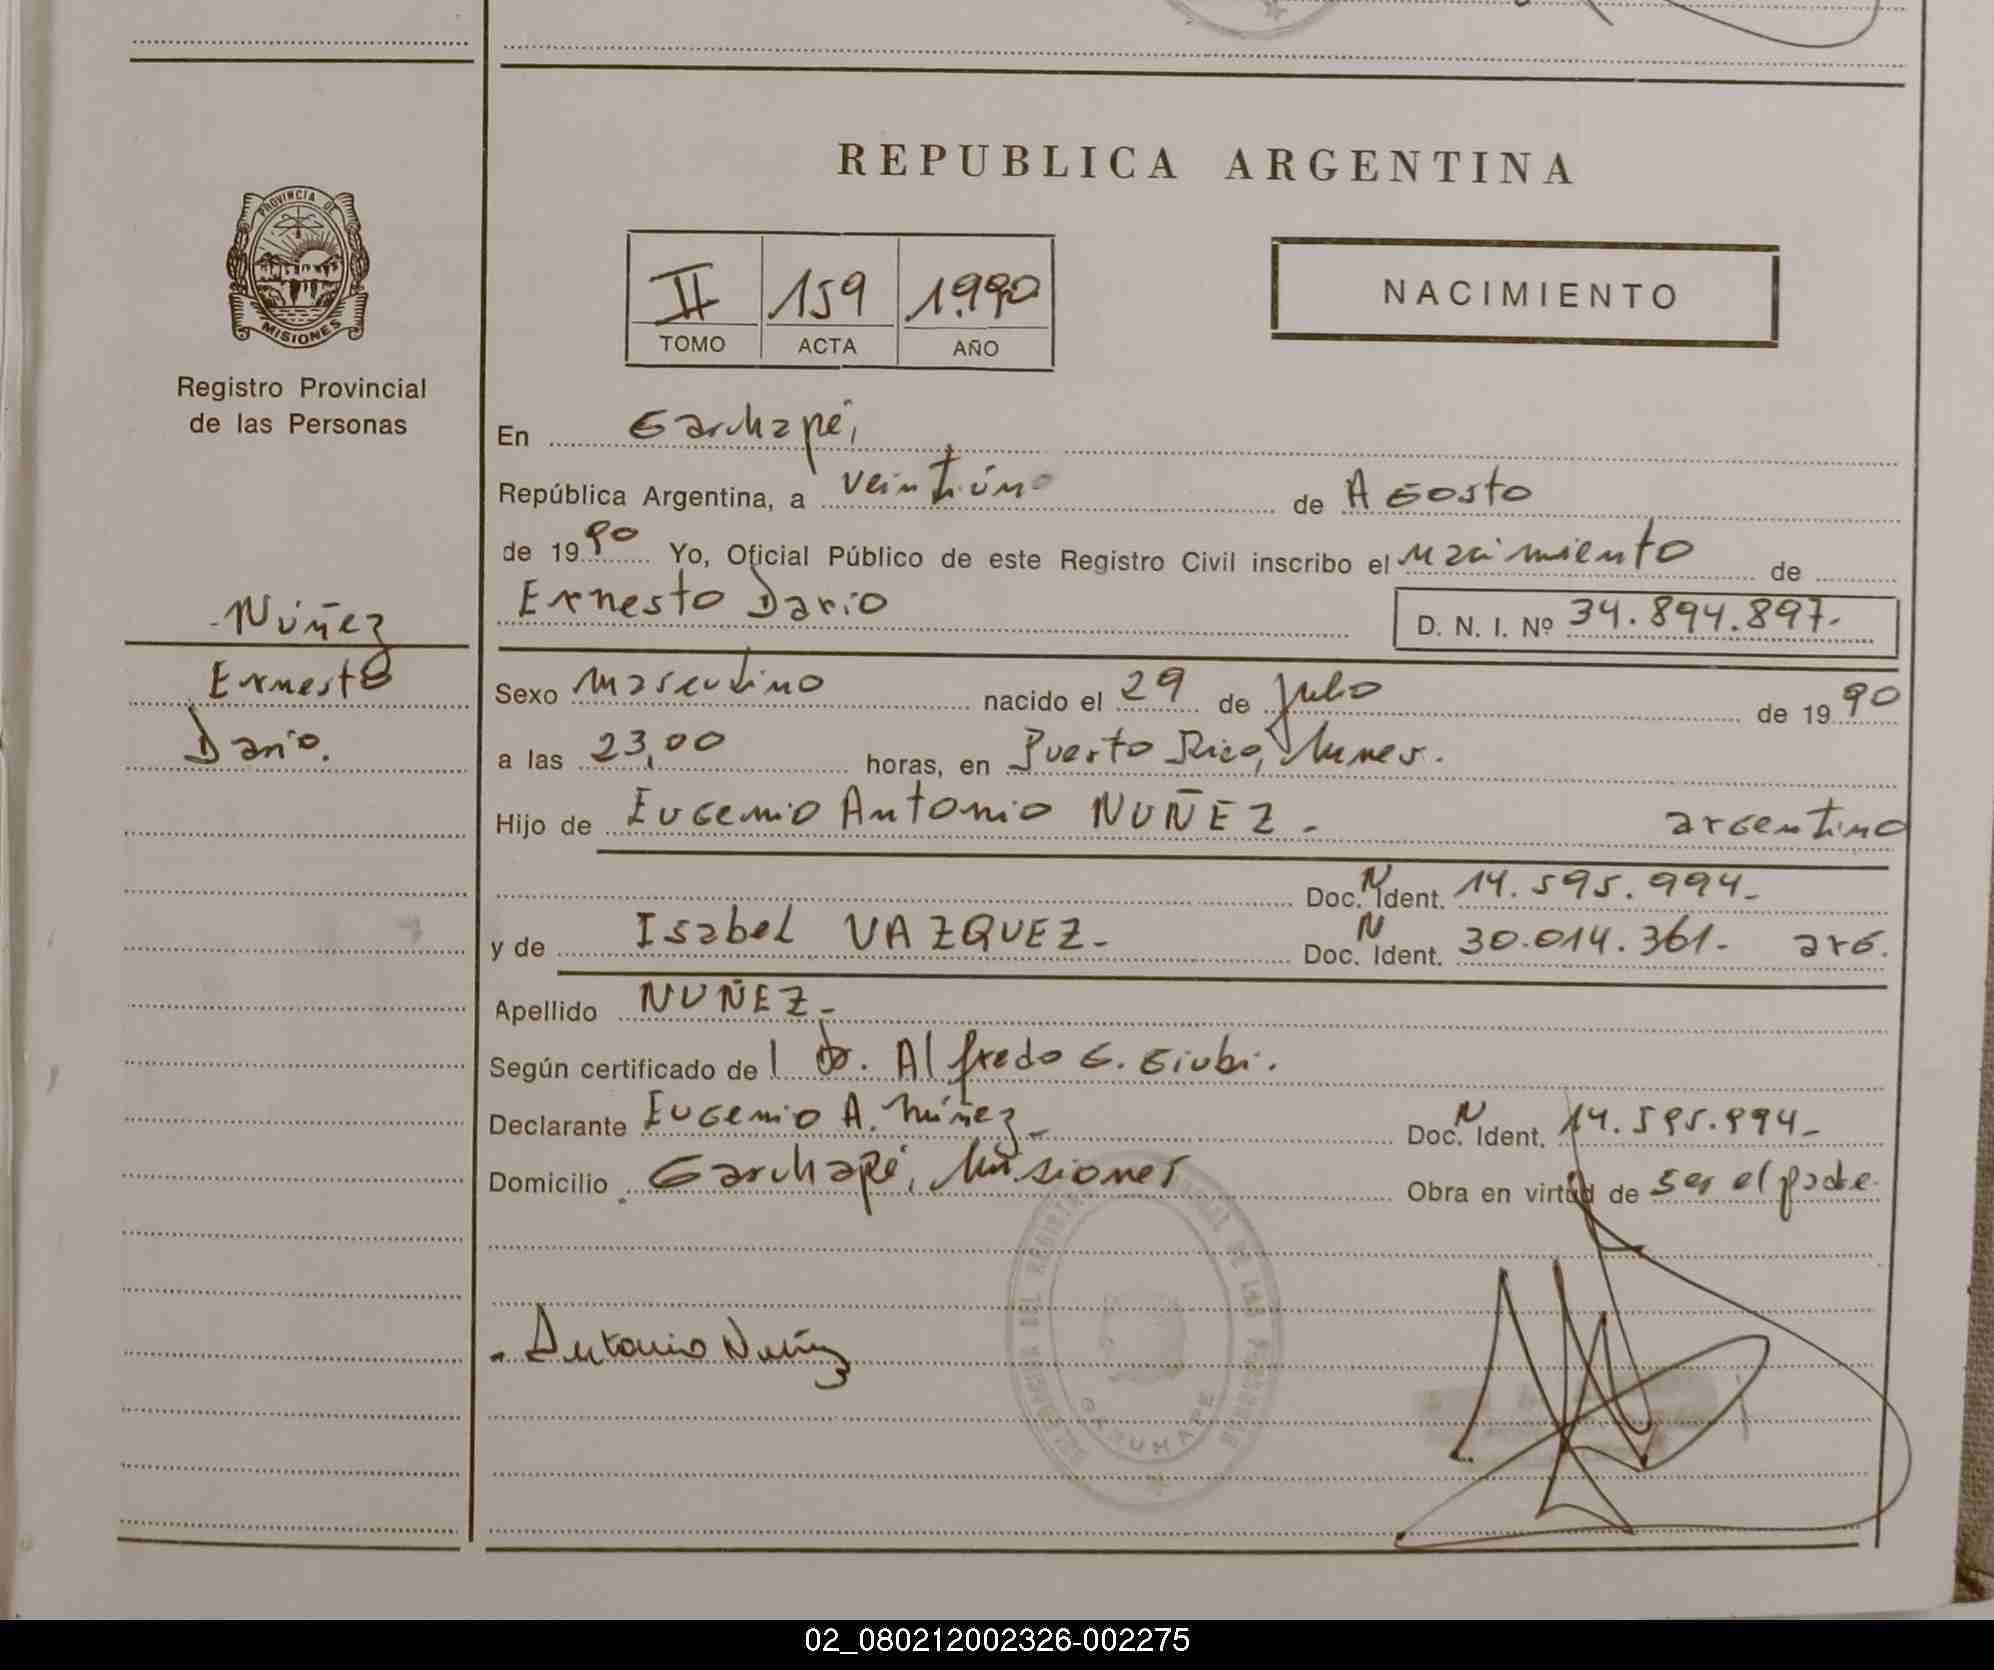 REPUBLICA ARGENTINA
PROVINCIA DE
MISIONES
Registro Provincial
de las Personas
II 159 1.990
TOMO ACTA AÑO
NACIMIENTO
En Garuhapé,
República Argentina, a veintiúno de Agosto
de 1990 Yo, Oficial Público de este Registro Civil inscribo el nacimiento de
Ernesto Dario D. N. I. Nº 34.894.897.-
-Núñez
Ernesto
Dario.
Sexo masculino nacido el 29 de julio de 1990
a las 23,00 horas, en Puerto Rico, Mnes.
Hijo de Eugenio Antonio NUÑEZ.- argentino
Doc. N Ident. 14.595.994.-
y de Isabel VAZQUEZ.- Doc. N Ident. 30.014.361.- arg.
Apellido NUÑEZ.-
Según certificado de l Dr. Alfredo G. Giubi.
Declarante Eugenio A. Núñez.- Doc. N Ident. 14.595.994.-
Domicilio Garuhapé, Misiones Obra en virtud de ser el padre
Antonio Nuñez
GARUHAPE
02_080212002326-002275